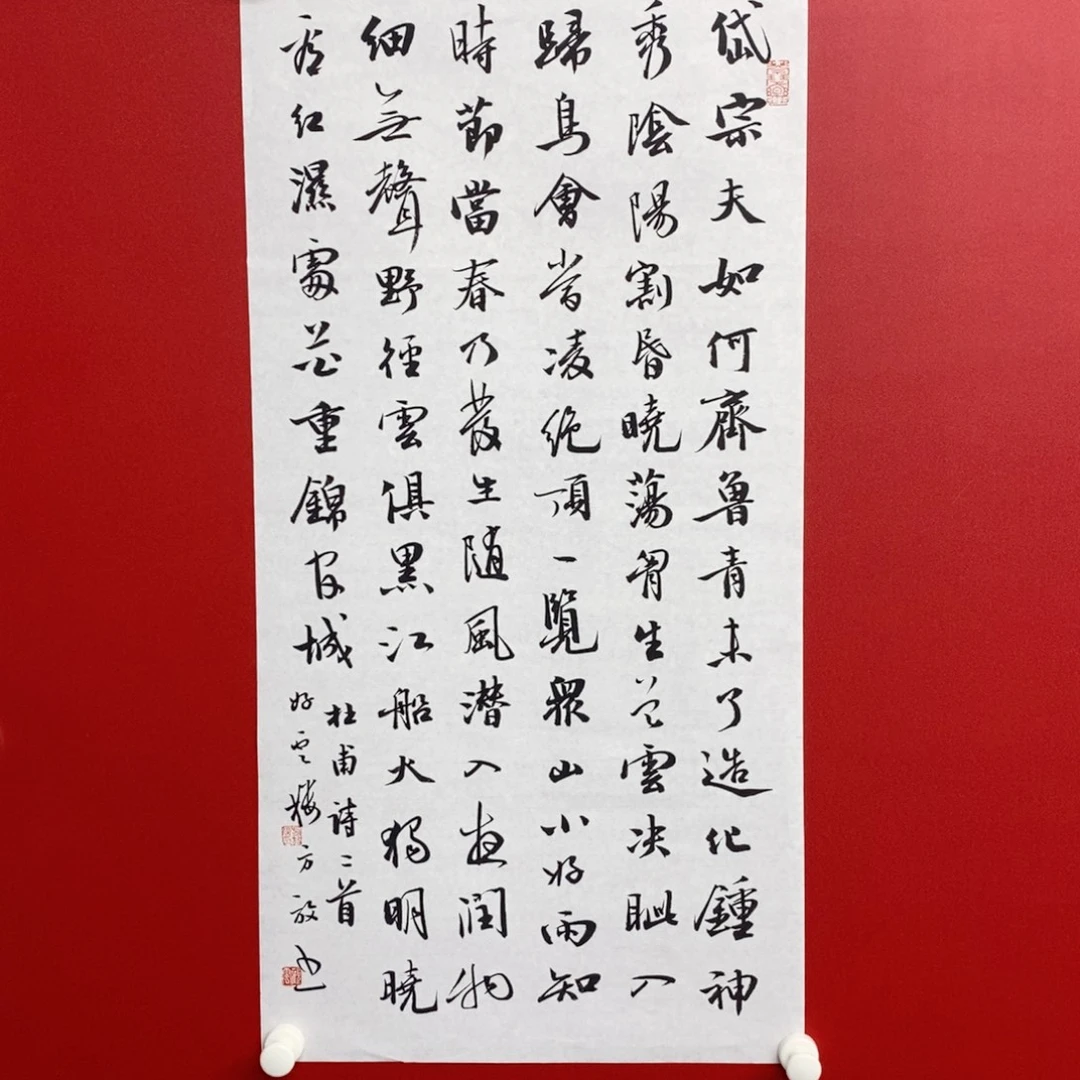 岱宗夫如何齊魯青未了造化鍾神
秀陰陽割昏曉蕩胷生曾雲决眦入
歸鳥會當凌絶頂一覽眾山小好雨知
時節當春乃發生随風潜入夜潤物
細無聲野徑雲俱黑江船火獨明曉
看紅濕處花重錦官城
杜甫詩二首
好雲樓方放书